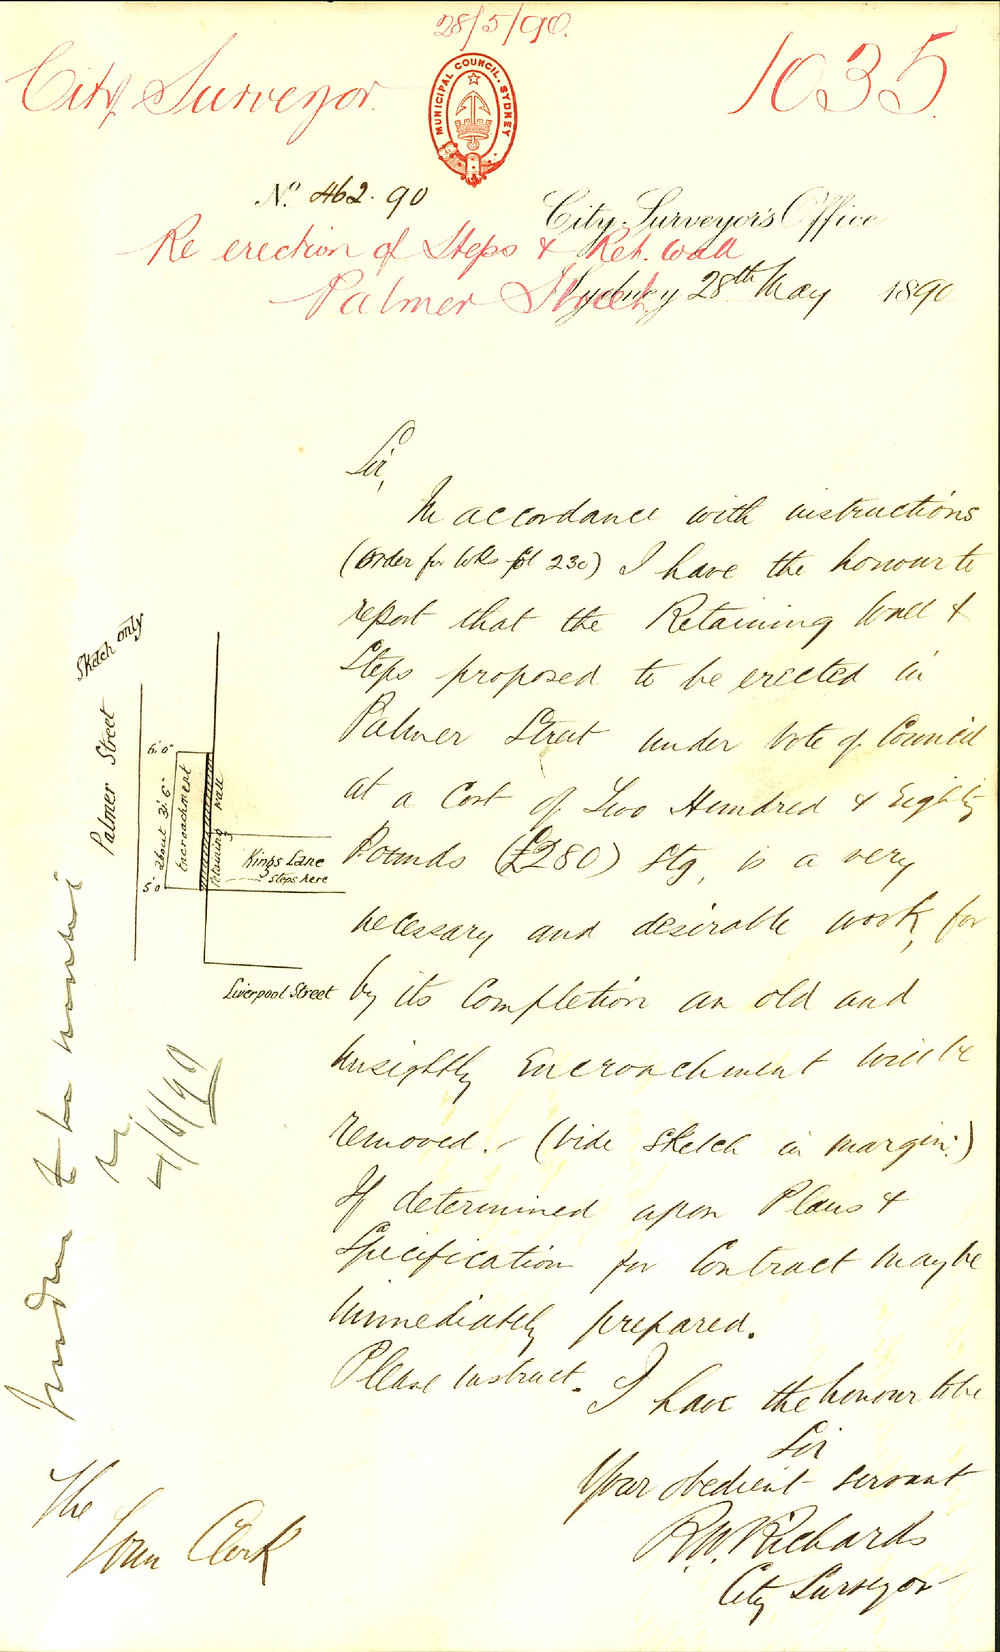 28/5/90.
City Surveyor.
1035.
MUNICIPAL COUNCIL. SYDNEY
No. 462. 90
City Surveyor's Office
Re erection of Steps & Ret. wall
Palmer Street
Sydney 28th May 1890
Sir,
In accordance with instructions
(Order for Wks fol 230) I have the honour to
report that the Retaining Wall &
Steps proposed to be erected in
Palmer Street under Vote of Council
at a Cost of Two Hundred & Eighty
Pounds (£280) Stg, is a very
necessary and desirable work, for
by its Completion an old and
unsightly Encroachment will be
removed. (Vide Sketch in margin.)
If determined upon Plans &
Specification for Contract may be
immediately prepared.
Please instruct.
I have the honour to be
Sir
Your obedient servant
R.W. Richards
City Surveyor
The
Town Clerk
Sketch only
Palmer Street
6'.0"
about 31'.6"
Encroachment
retaining wall
5'.0"
Kings Lane
Steps here
Liverpool Street
to be
4/6/90